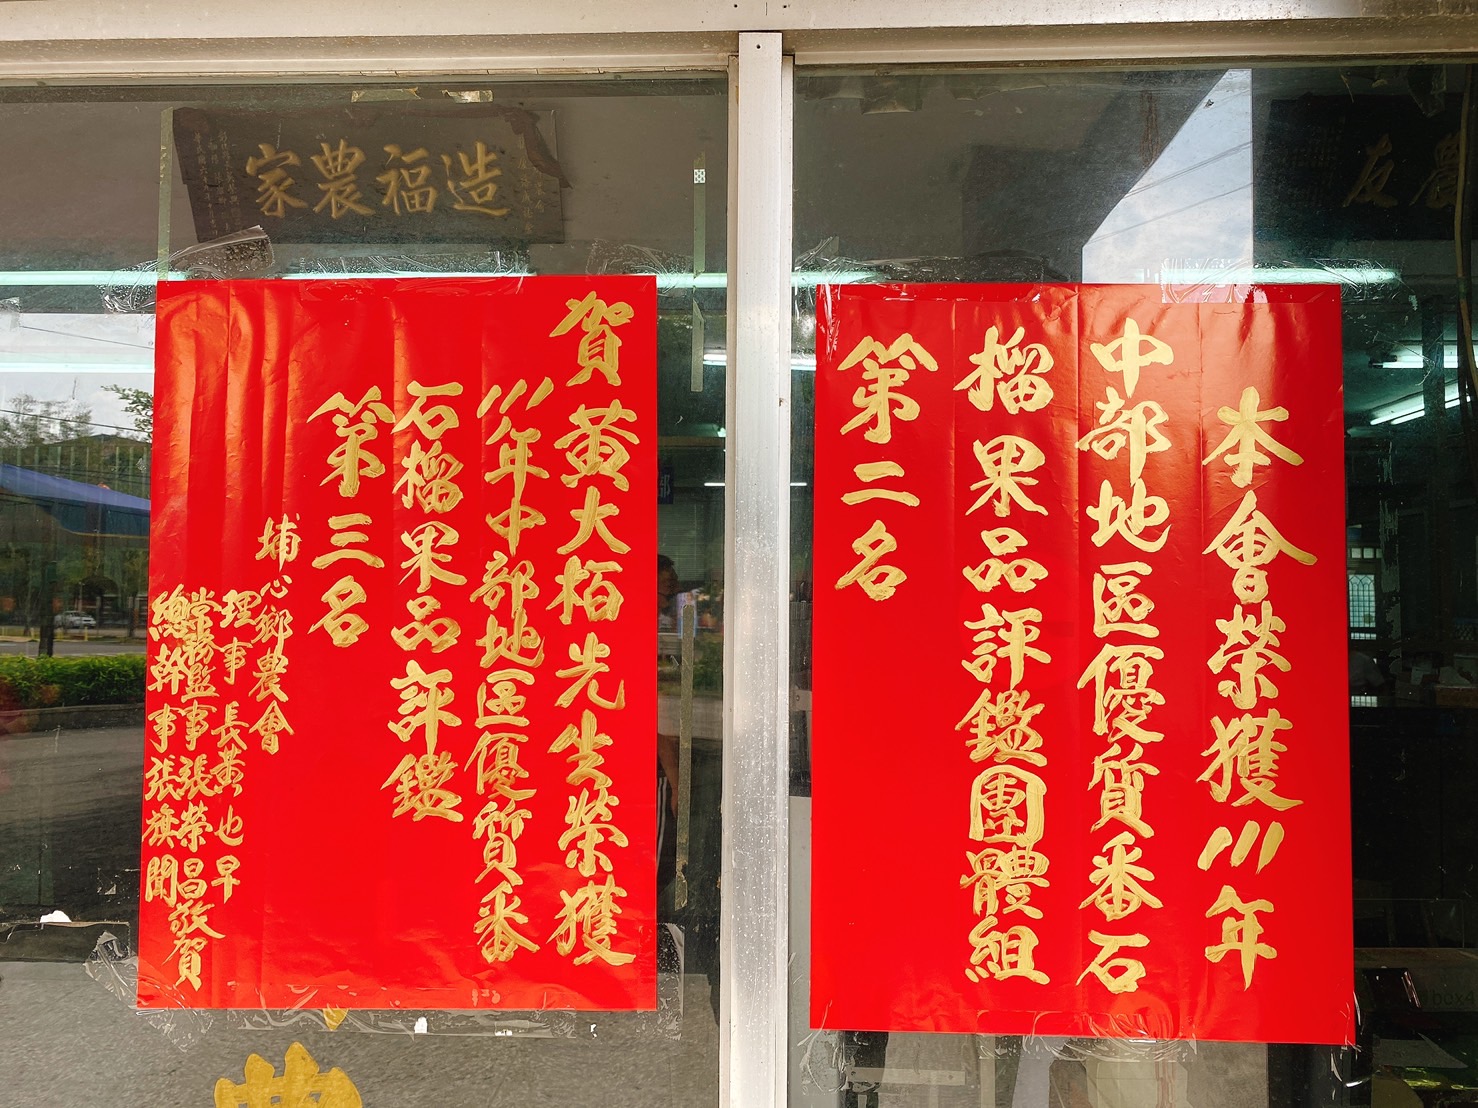 造福農家
農友
本會榮獲111年
中部地區優質番石
榴果品評鑑團體組
第二名
賀黃大栢先生榮獲
111年中部地區優質番
石榴果品評鑑
第三名
埔心鄉農會
理事長黃也早
常務監事張榮昌敬賀
總幹事張旗聞